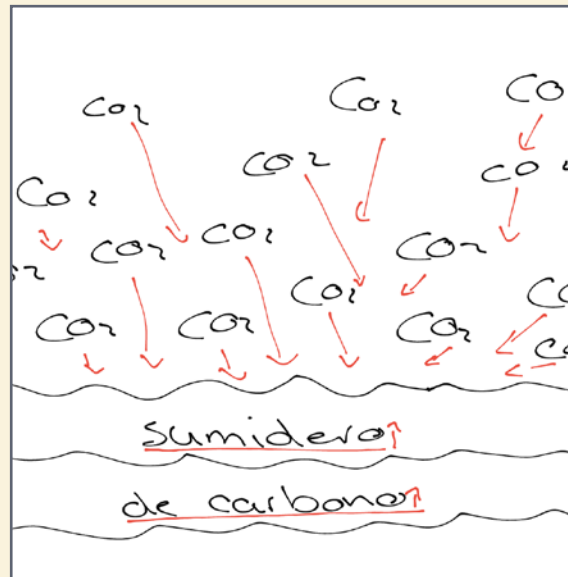 CO2
CO2
CO
CO2
CO2
CO2
CO2
CO2
CO2
CO2
CO2
CO2
CO2
sumidero
de carbono